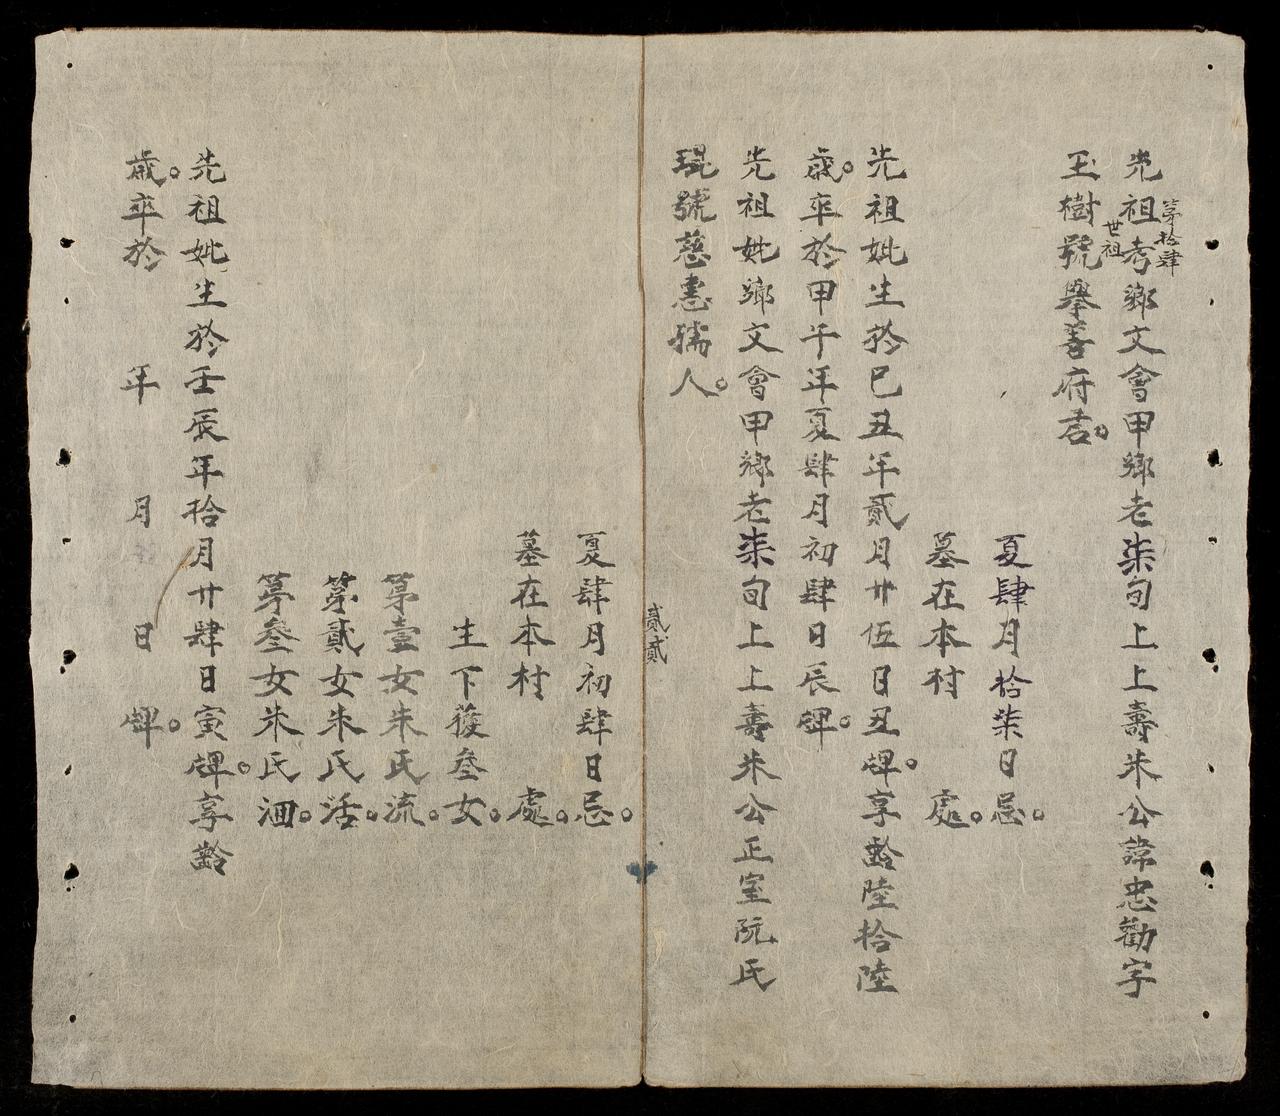 第拾肆
世祖
先祖考鄉文會甲鄉老柒旬上上壽朱公諱忠勸字
玉樹號舉善府君。
夏肆月拾柒日忌。
墓在本村　處。
先祖妣生於巳丑年貳月廿伍日丑牌。享齡陸拾陸
歲。卒於甲午年夏肆月初肆日辰牌。
先祖妣鄉文會甲鄉老柒旬上上壽朱公正室阮氏
琨號慈惠孺人。
貳貳
夏肆月初肆日忌。
墓在本村　處。
生下獲叁女。
第壹女朱氏流。
第貳女朱氏活。
第叁女朱氏湎。
先祖妣生於壬辰年拾月廿肆日寅牌。享齡
歲。卒於　年　月　日　牌。